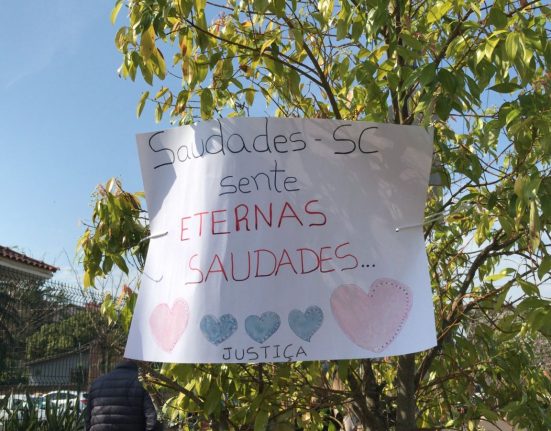 Saudades - SC
sente
ETERNAS
SAUDADES...
JUSTIÇA